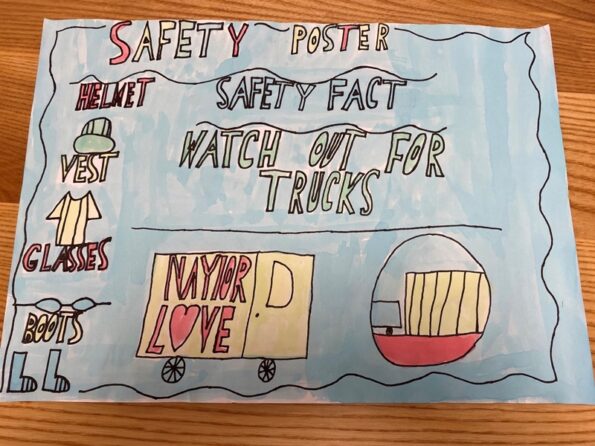 SAFETY POSTER
HELMET
SAFETY FACT
VEST
WATCH OUT FOR
TRUCKS
GLASSES
BOOTS
NAYlOR
LOVE